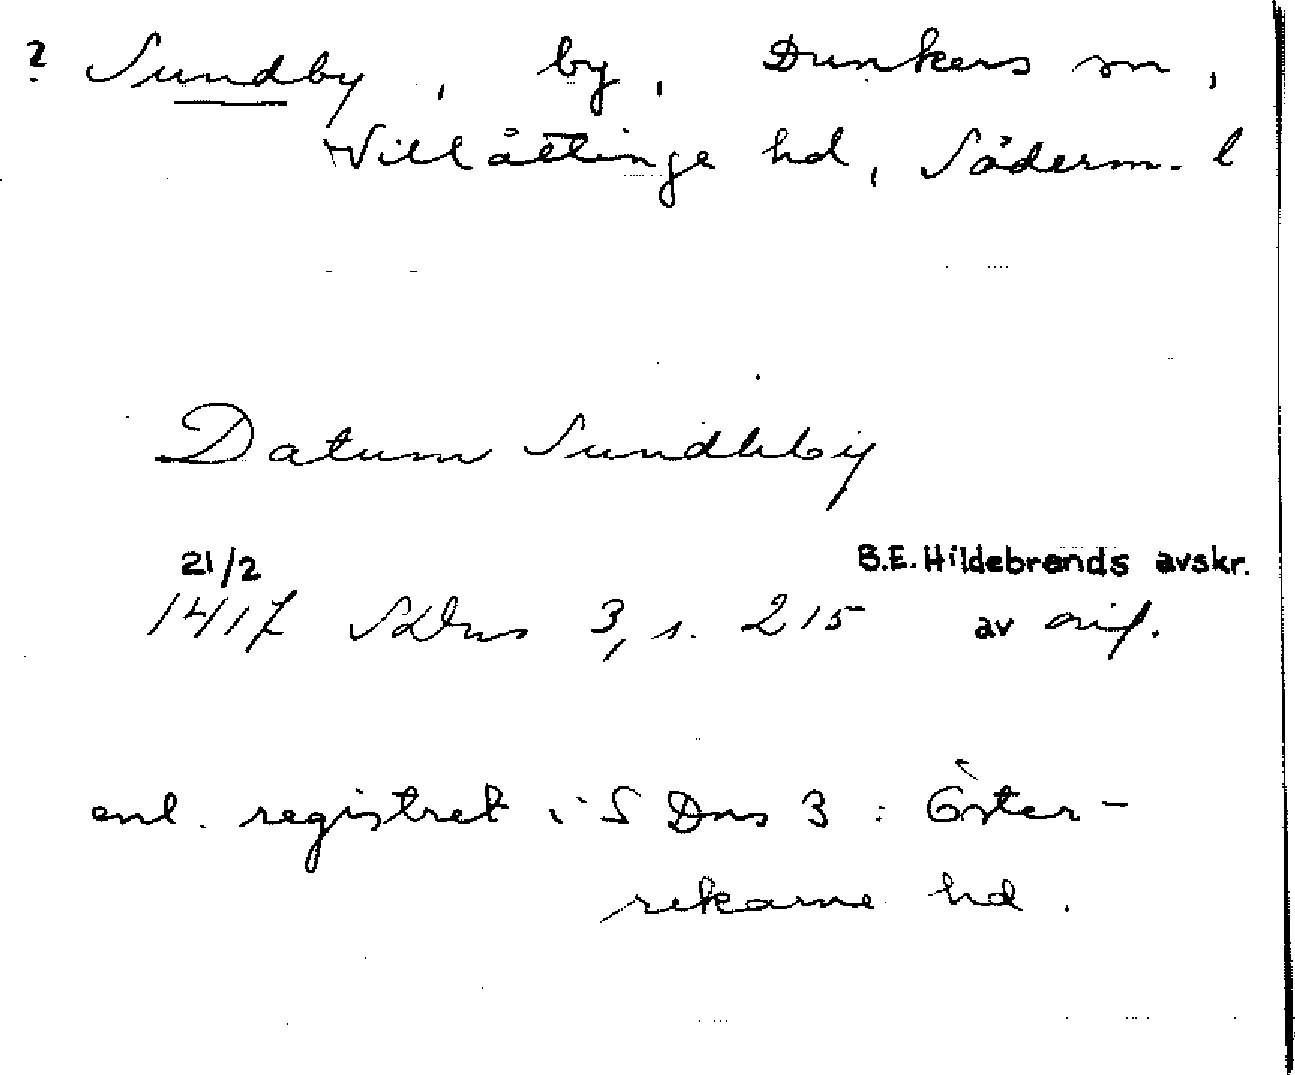 ? Sundby, by, Dunkers sn,
Villåttinge hd, Söderm. l
Datum Sundhby
21/2 B.E. Hildebrands avskr.
1417 SDns 3, s. 215 av orig.
enl. registret i S Dns 3: Öster-
rekarne hd.